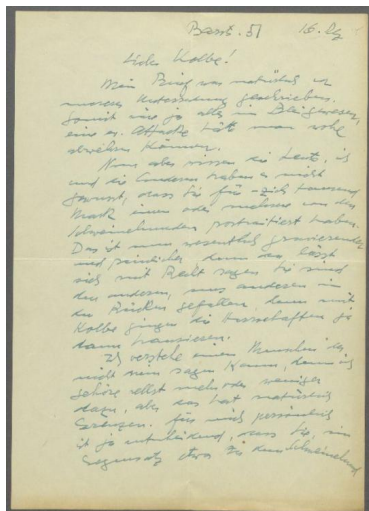 Barstr. 51 16. Dez
Lieber Kolbe!
Mein Brief war natürlich in
unserer Untersetzung geschrieben.
Somit wäre ja alles im Reinen gewesen,
eine Attacke hätte man wohl
abwehren können.
Nun aber wissen die Leute, ich
und die anderen haben es nicht
gewusst, dass Sie für zig tausend
Mark einen oder mehrere von den
Schweinehunden porträtiert haben.
Das ist nun wesentlich gravierender
und peinlicher, denn das lässt
sich mit Recht sagen Sie sind
den anderen, uns anderen in
den Rücken gefallen, denn mit
Kolbe gingen die Herrschaften ja
dann hausieren.
Ich verstehe einen Menschen der
nicht nein sagen kann, denn ich
gehöre selbst mehr oder weniger
dazu, aber das hat natürlich
Grenzen. Für mich persönlich
ist ja entscheidend, dass Sie, im
Gegensatz etwa zu dem Schweinehund